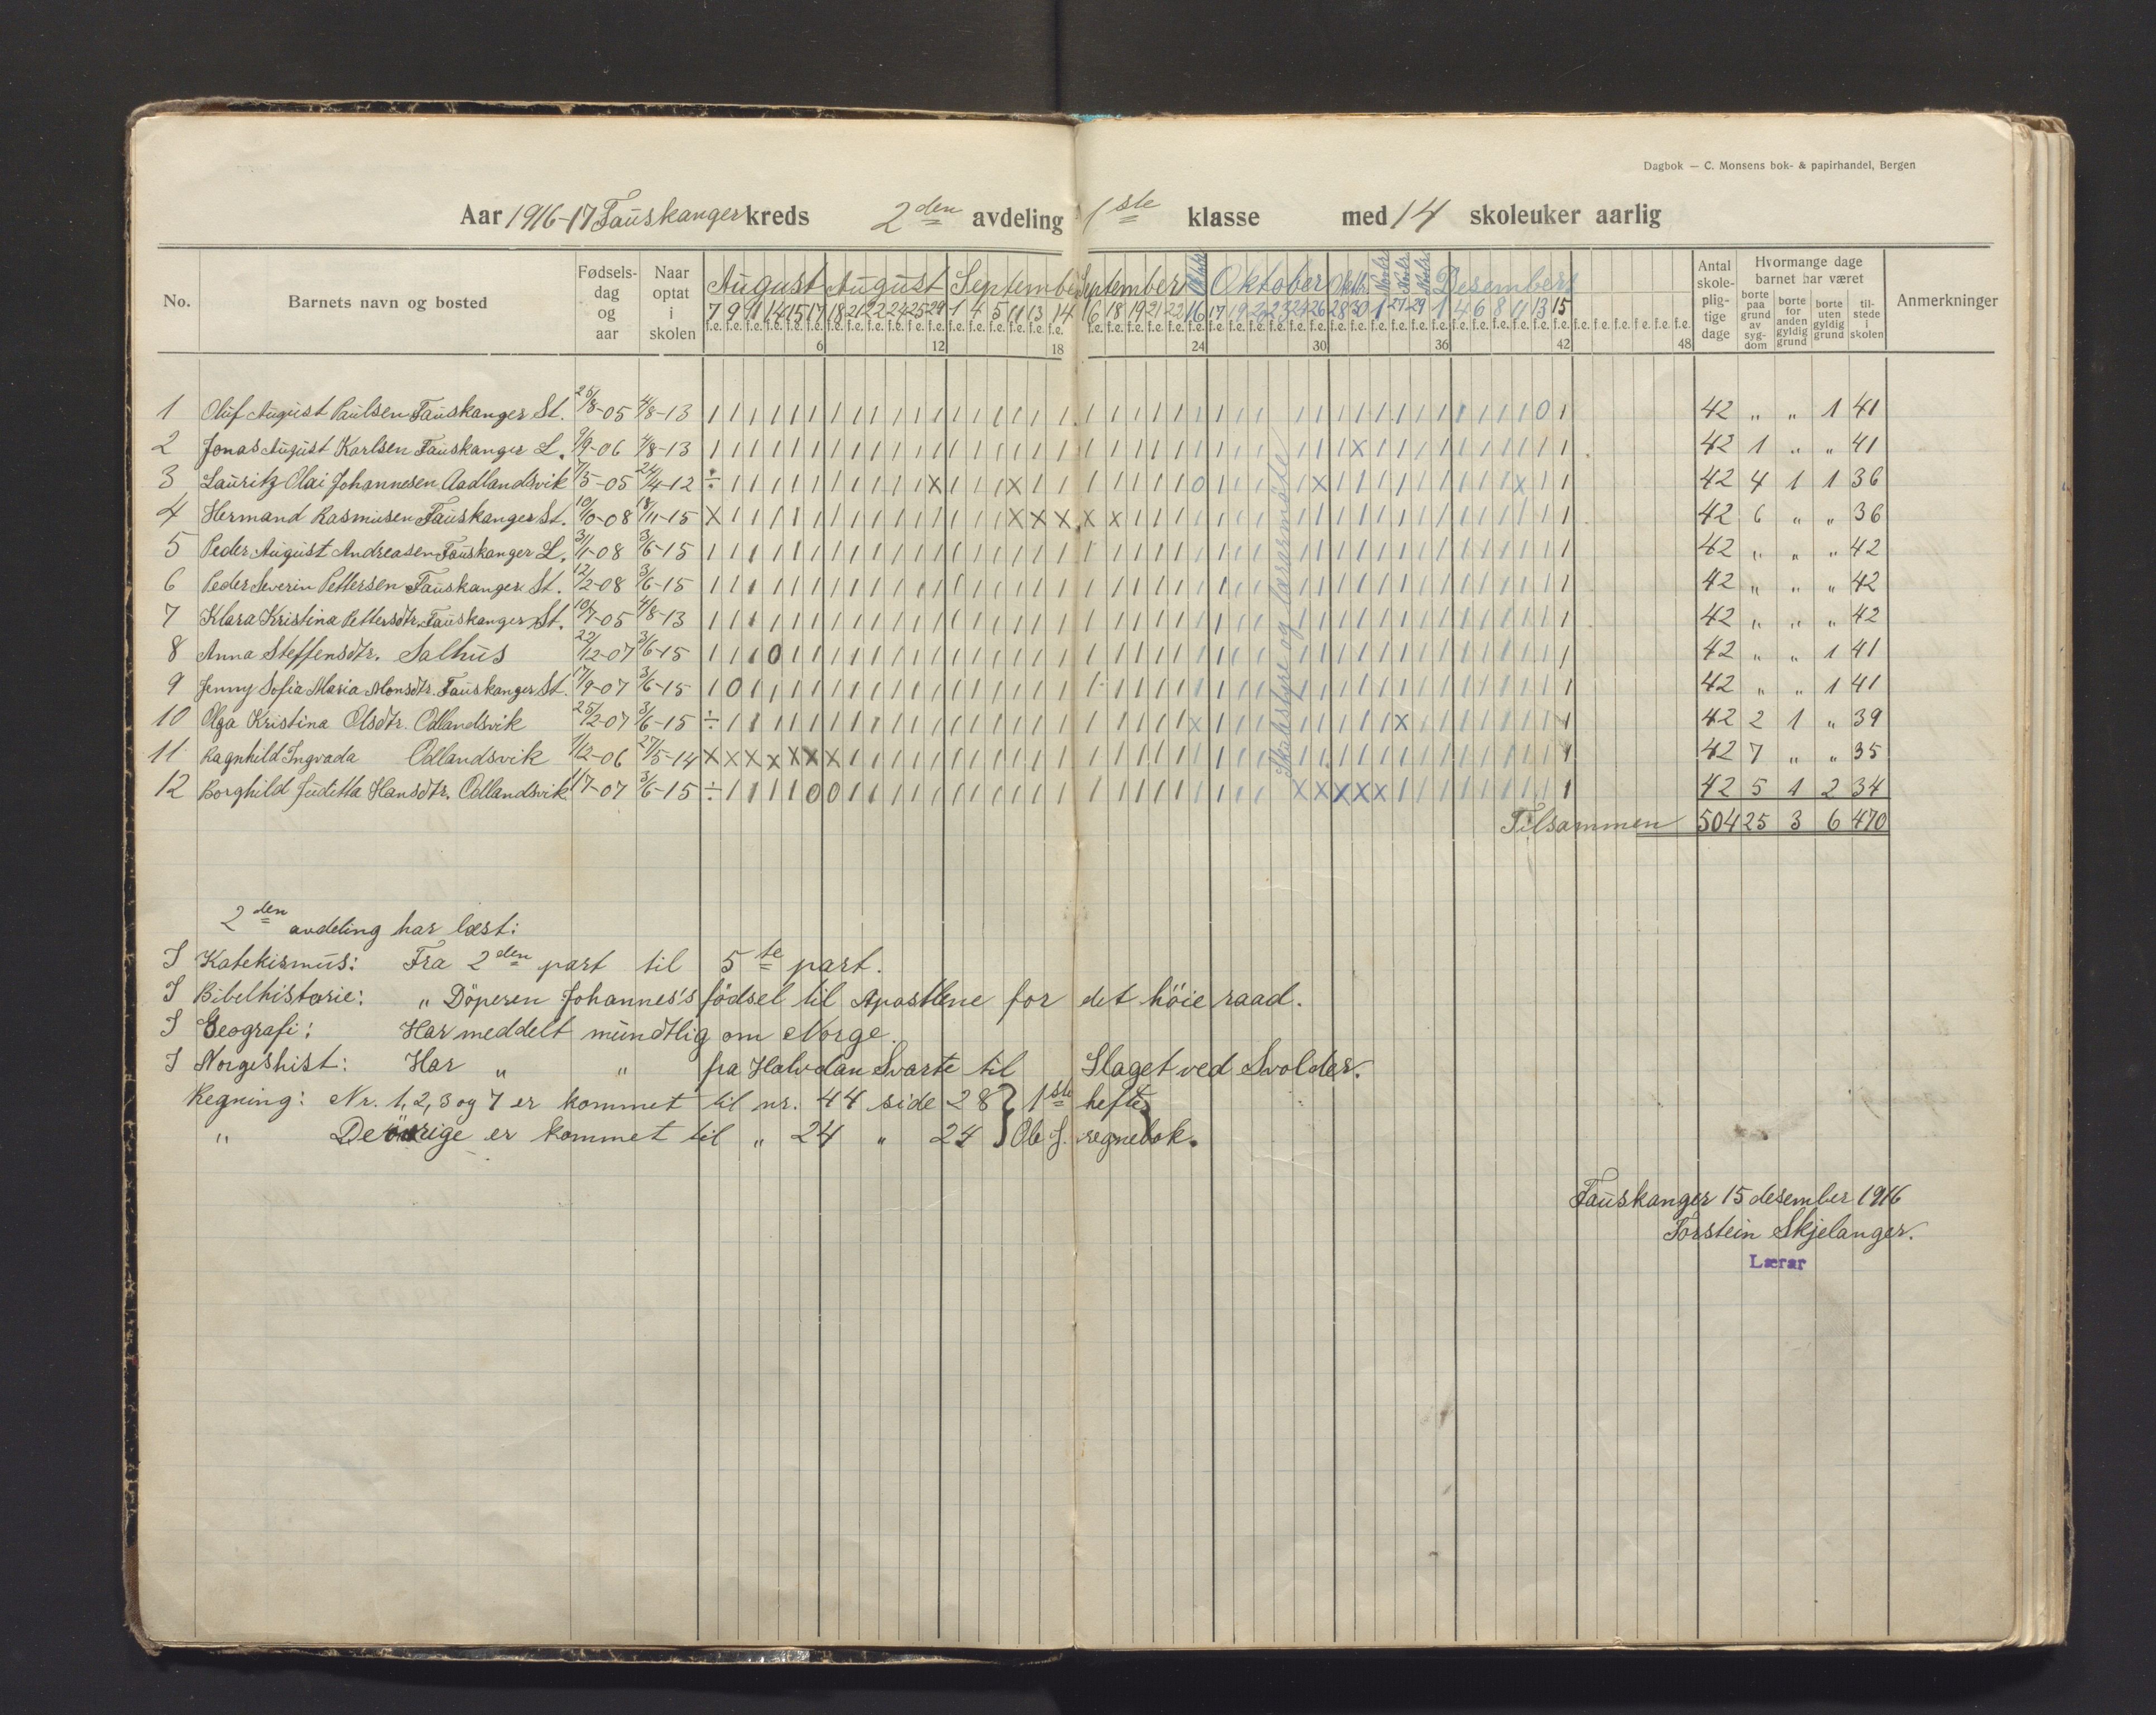 Dagbok — C. Monsens bok- & papirhandel, Bergen
Aar 1916-17 Fauskanger kreds 2den avdeling 1ste klasse med 14 skoleuker aarlig
No. Barnets navn og bosted Fødselsdag og aar Naar optat i skolen August August September September Oktober Oktober Oktbr. Novbr. Novbr. Novbr. Desember Antal skolepligtige dage Hvormange dage barnet har været Anmerkninger
borte paa grund av sygdom borte for anden gyldig grund borte uten gyldig grund tilstede i skolen
7 9 11 14 15 17 18 21 22 24 25 29 1 4 5 11 13 14 16 18 19 21 22 16 17 19 21 23 24 26 28 30 1 27 29 1 4 6 8 11 13 15
f.e. f.e. f.e. f.e. f.e. f.e. f.e. f.e. f.e. f.e. f.e. f.e. f.e. f.e. f.e. f.e. f.e. f.e. f.e. f.e. f.e. f.e. f.e. f.e. f.e. f.e. f.e. f.e. f.e. f.e. f.e. f.e. f.e. f.e. f.e. f.e. f.e. f.e. f.e. f.e. f.e. f.e. f.e. f.e. f.e. f.e. f.e. f.e.
6 12 18 24 30 36 42 48
1 Oluf August Paulsen Fauskanger St. 25/8-05 4/8-13 42 „ „ 1 41
2 Jonas August Karlsen Fauskanger L. 9/9-06 4/8-13 42 1 „ „ 41
3 Lauritz Olai Johannesen Aadlandsvik 7/5-05 24/4-12 42 4 1 1 36
4 Hermand Rasmusen Fauskanger St. 10/10-08 18/11-15 42 6 „ „ 36
5 Peder August Andreasen Fauskanger L. 31/1-08 3/6-15 42 „ „ „ 42
6 Peder Severin Pettersen Fauskanger St. 12/2-08 3/6-15 42 „ „ „ 42
7 Klara Kristina Pettersdtr. Fauskanger St. 10/7-05 4/8-13 42 „ „ „ 42
8 Anna Steffensdtr. Salhus 22/12-07 3/6-15 42 „ „ 1 41
9 Jenny Sofia Maria Monsdtr. Fauskanger St. 17/9-07 3/6-15 42 „ „ 1 41
10 Olga Kristina Olsdtr. Odlandsvik 25/2-07 3/6-15 42 2 1 „ 39
11 Ragnhild Ingvada Odlandsvik 1/12-06 27/5-14 42 7 „ „ 35
12 Borghild Juditta Hansdtr. Odlandsvik 11/7-07 3/6-15 42 5 1 2 34
Skolestyre og lærarmöte
Tilsammen 504 25 3 6 470
2den avdeling har læst:
I Katekismus: Fra 2den part til 5te part.
I Bibelhistorie: „ Döperen Johannes's födsel til Apostlene for det höie raad.
I Geografi: Har meddelt mundtlig om Norge.
I Norgeshist: Har „ „ fra Halvdan Svarte til Slaget ved Svolder.
Regning: Nr. 1, 2, 3 og 7 er kommet til nr. 44 side 28 } 1ste hefte
„ De övrige er kommet til „ 24 „ 24 } Ole J. regnebok.
Fauskanger 15 desember 1916
Torstein Skjelanger.
Lærar